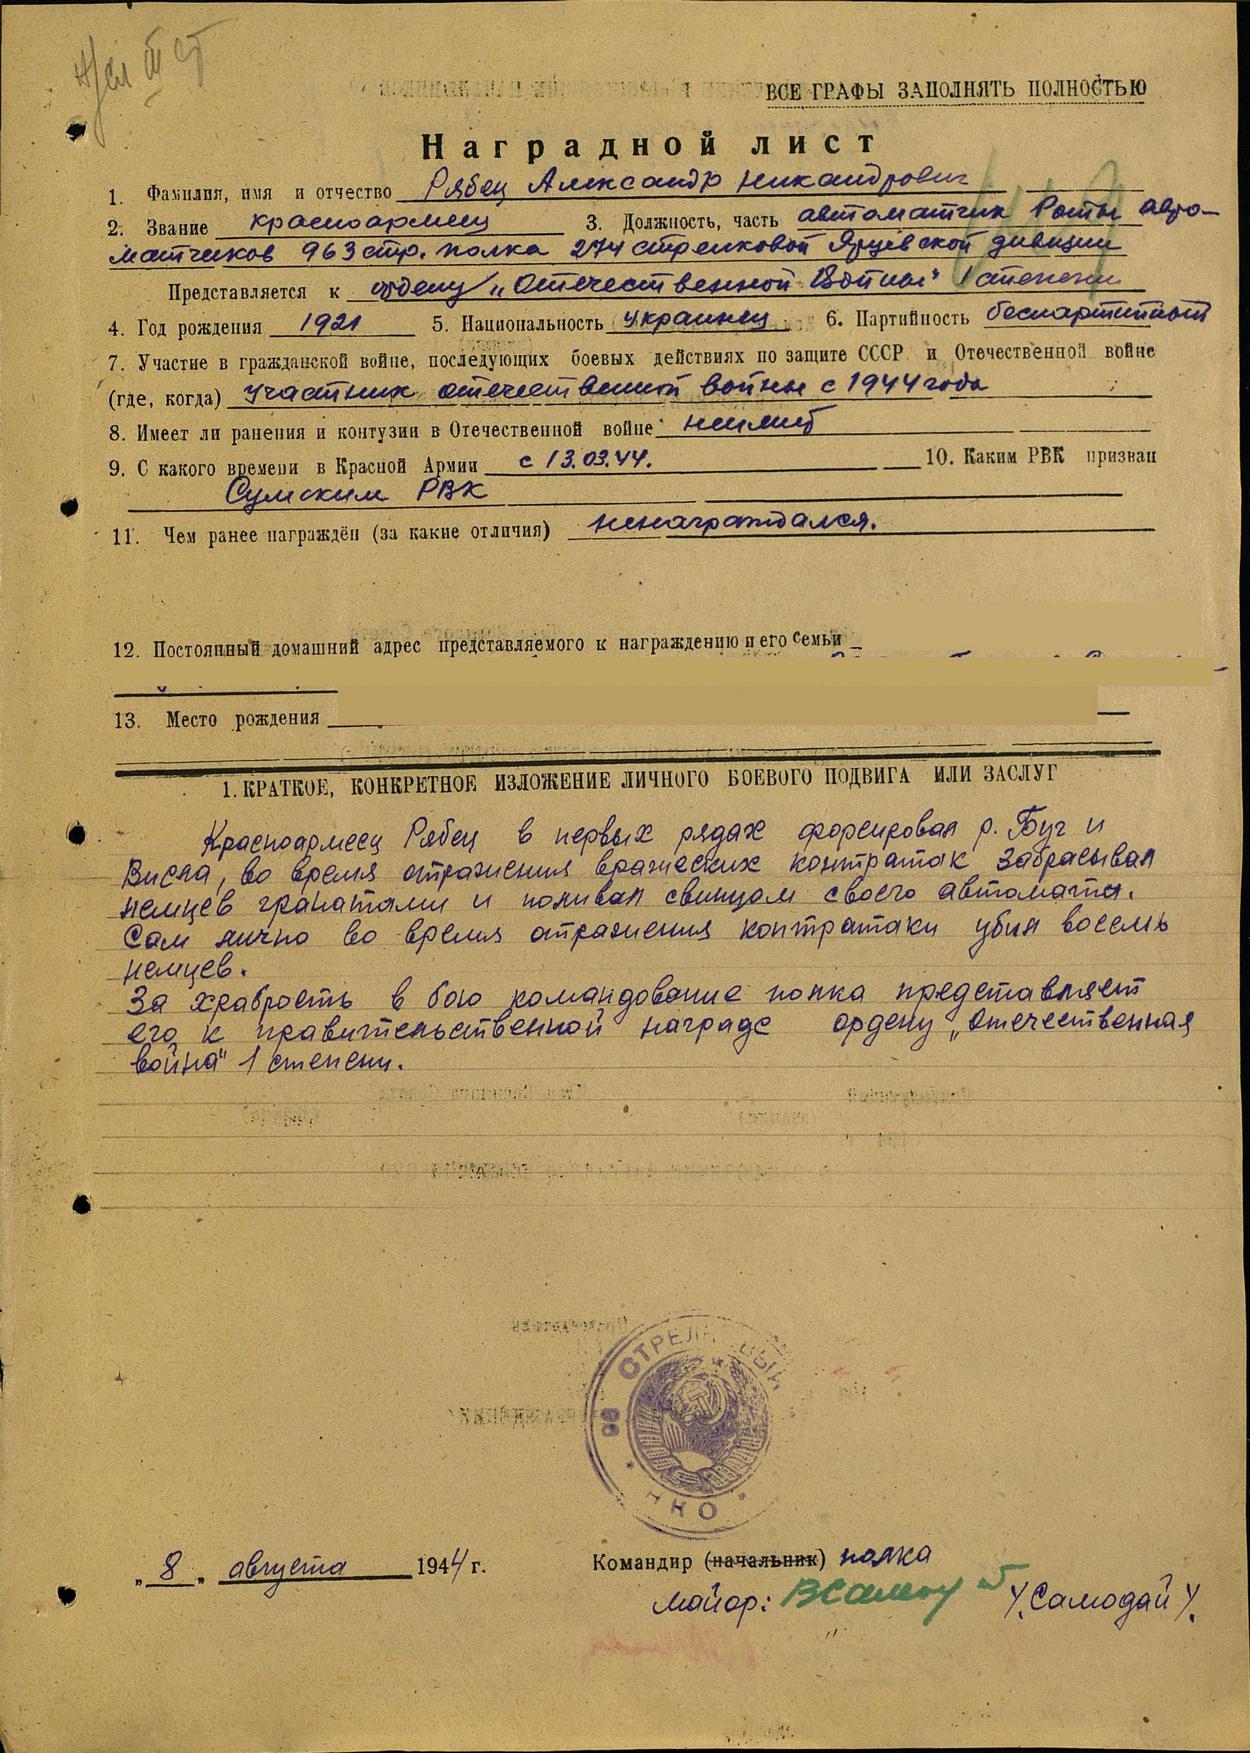 ВСЕ ГРАФЫ ЗАПОЛНЯТЬ ПОЛНОСТЬЮ
Наградной лист
1. Фамилия, имя и отчество Рябец Александр Никандрович
2. Звание красноармеец 3. Должность, часть автоматчик Роты авто-
матчиков 963 стр. полка 274 стрелковой Ярцевской дивизии
Представляется к ордену „Отечественной Войны" 1 степени
4. Год рождения 1921 5. Национальность Украинец 6. Партийность беспартийный
7. Участие в гражданской войне, последующих боевых действиях по защите СССР и Отечественной войне
(где, когда) участник отечественной войны с 1944 года
8. Имеет ли ранения и контузии в Отечественной войне неимеет
9. С какого времени в Красной Армии с 13.03.44. 10. Каким РВК призван
Сумским РВК
11. Чем ранее награждён (за какие отличия) ненаграждался.
12. Постоянный домашний адрес представляемого к награждению и его семьи
13. Место рождения
1. КРАТКОЕ, КОНКРЕТНОЕ ИЗЛОЖЕНИЕ ЛИЧНОГО БОЕВОГО ПОДВИГА ИЛИ ЗАСЛУГ
Красноармеец Рябец в первых рядах форсировал р. Буг и
Висла, во время отражения вражеских контратак забрасывал
немцев гранатами и поливал свинцом своего автомата.
Сам лично во время отражения контратаки убил восемь
немцев.
За храбрость в бою командование полка представляет
его к правительственной награде ордену „Отечественная
война" 1 степени.
СТРЕЛКОВЫЙ
НКО
„8" августа 1944 г. Командир (начальник) полка
майор: /Самодай/.